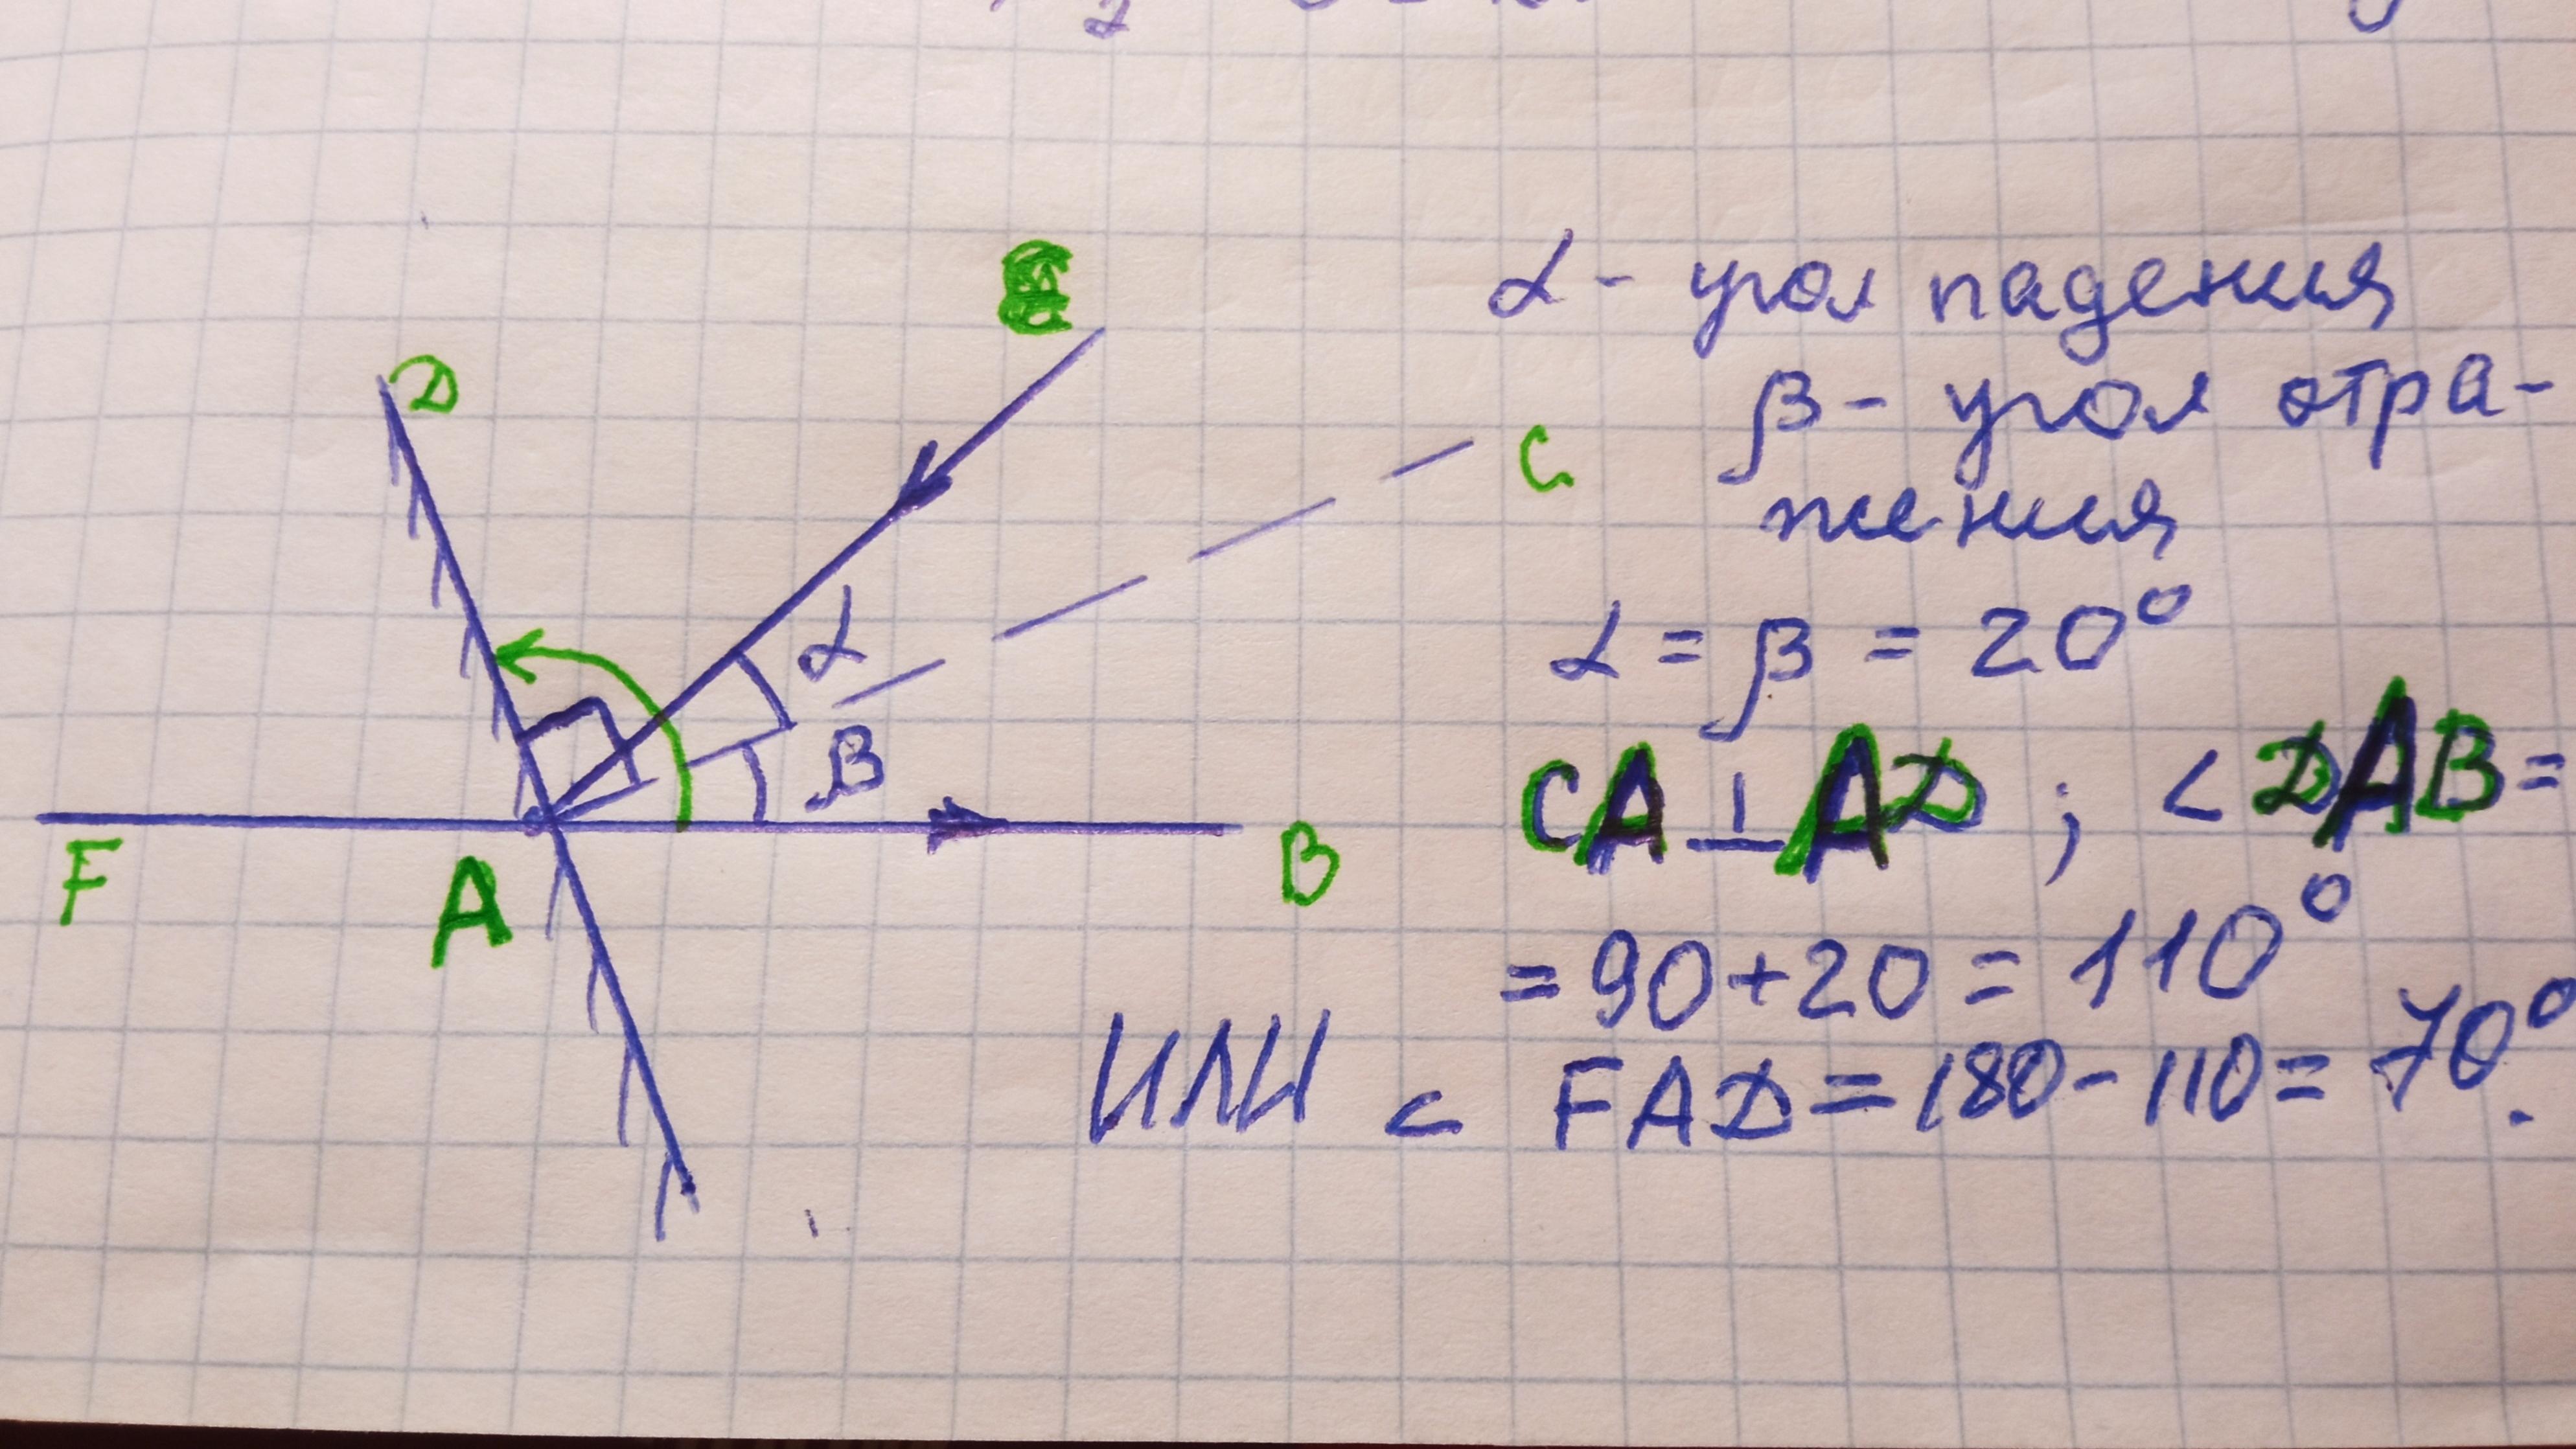 D
C
α
β
F
A
B
α - угол падения
β - угол отра-
жения
α = β = 20°
CA ⊥ AD ; < DAB =
= 90 + 20 = 110°
ИЛИ < FAD = 180 - 110 = 70°.